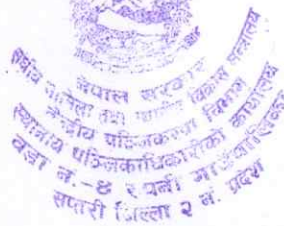 नेपाल सरकार
संघीय मामिला तथा स्थानीय विकास मन्त्रालय
केन्द्रीय पञ्जिकरण विभाग
स्थानीय पञ्जिकाधिकारीको कार्यालय
वडा नं.-४ रुपनी गाउँपालिका
सप्तरी जिल्ला २ नं. प्रदेश